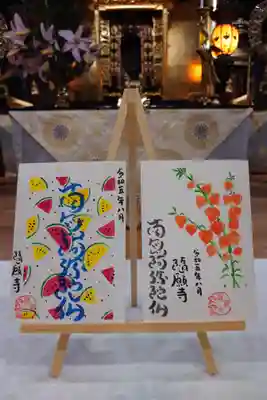 令和五年八月
南無阿弥陀仏
隨願寺
南無阿弥陀仏
令和五年八月
隨願寺